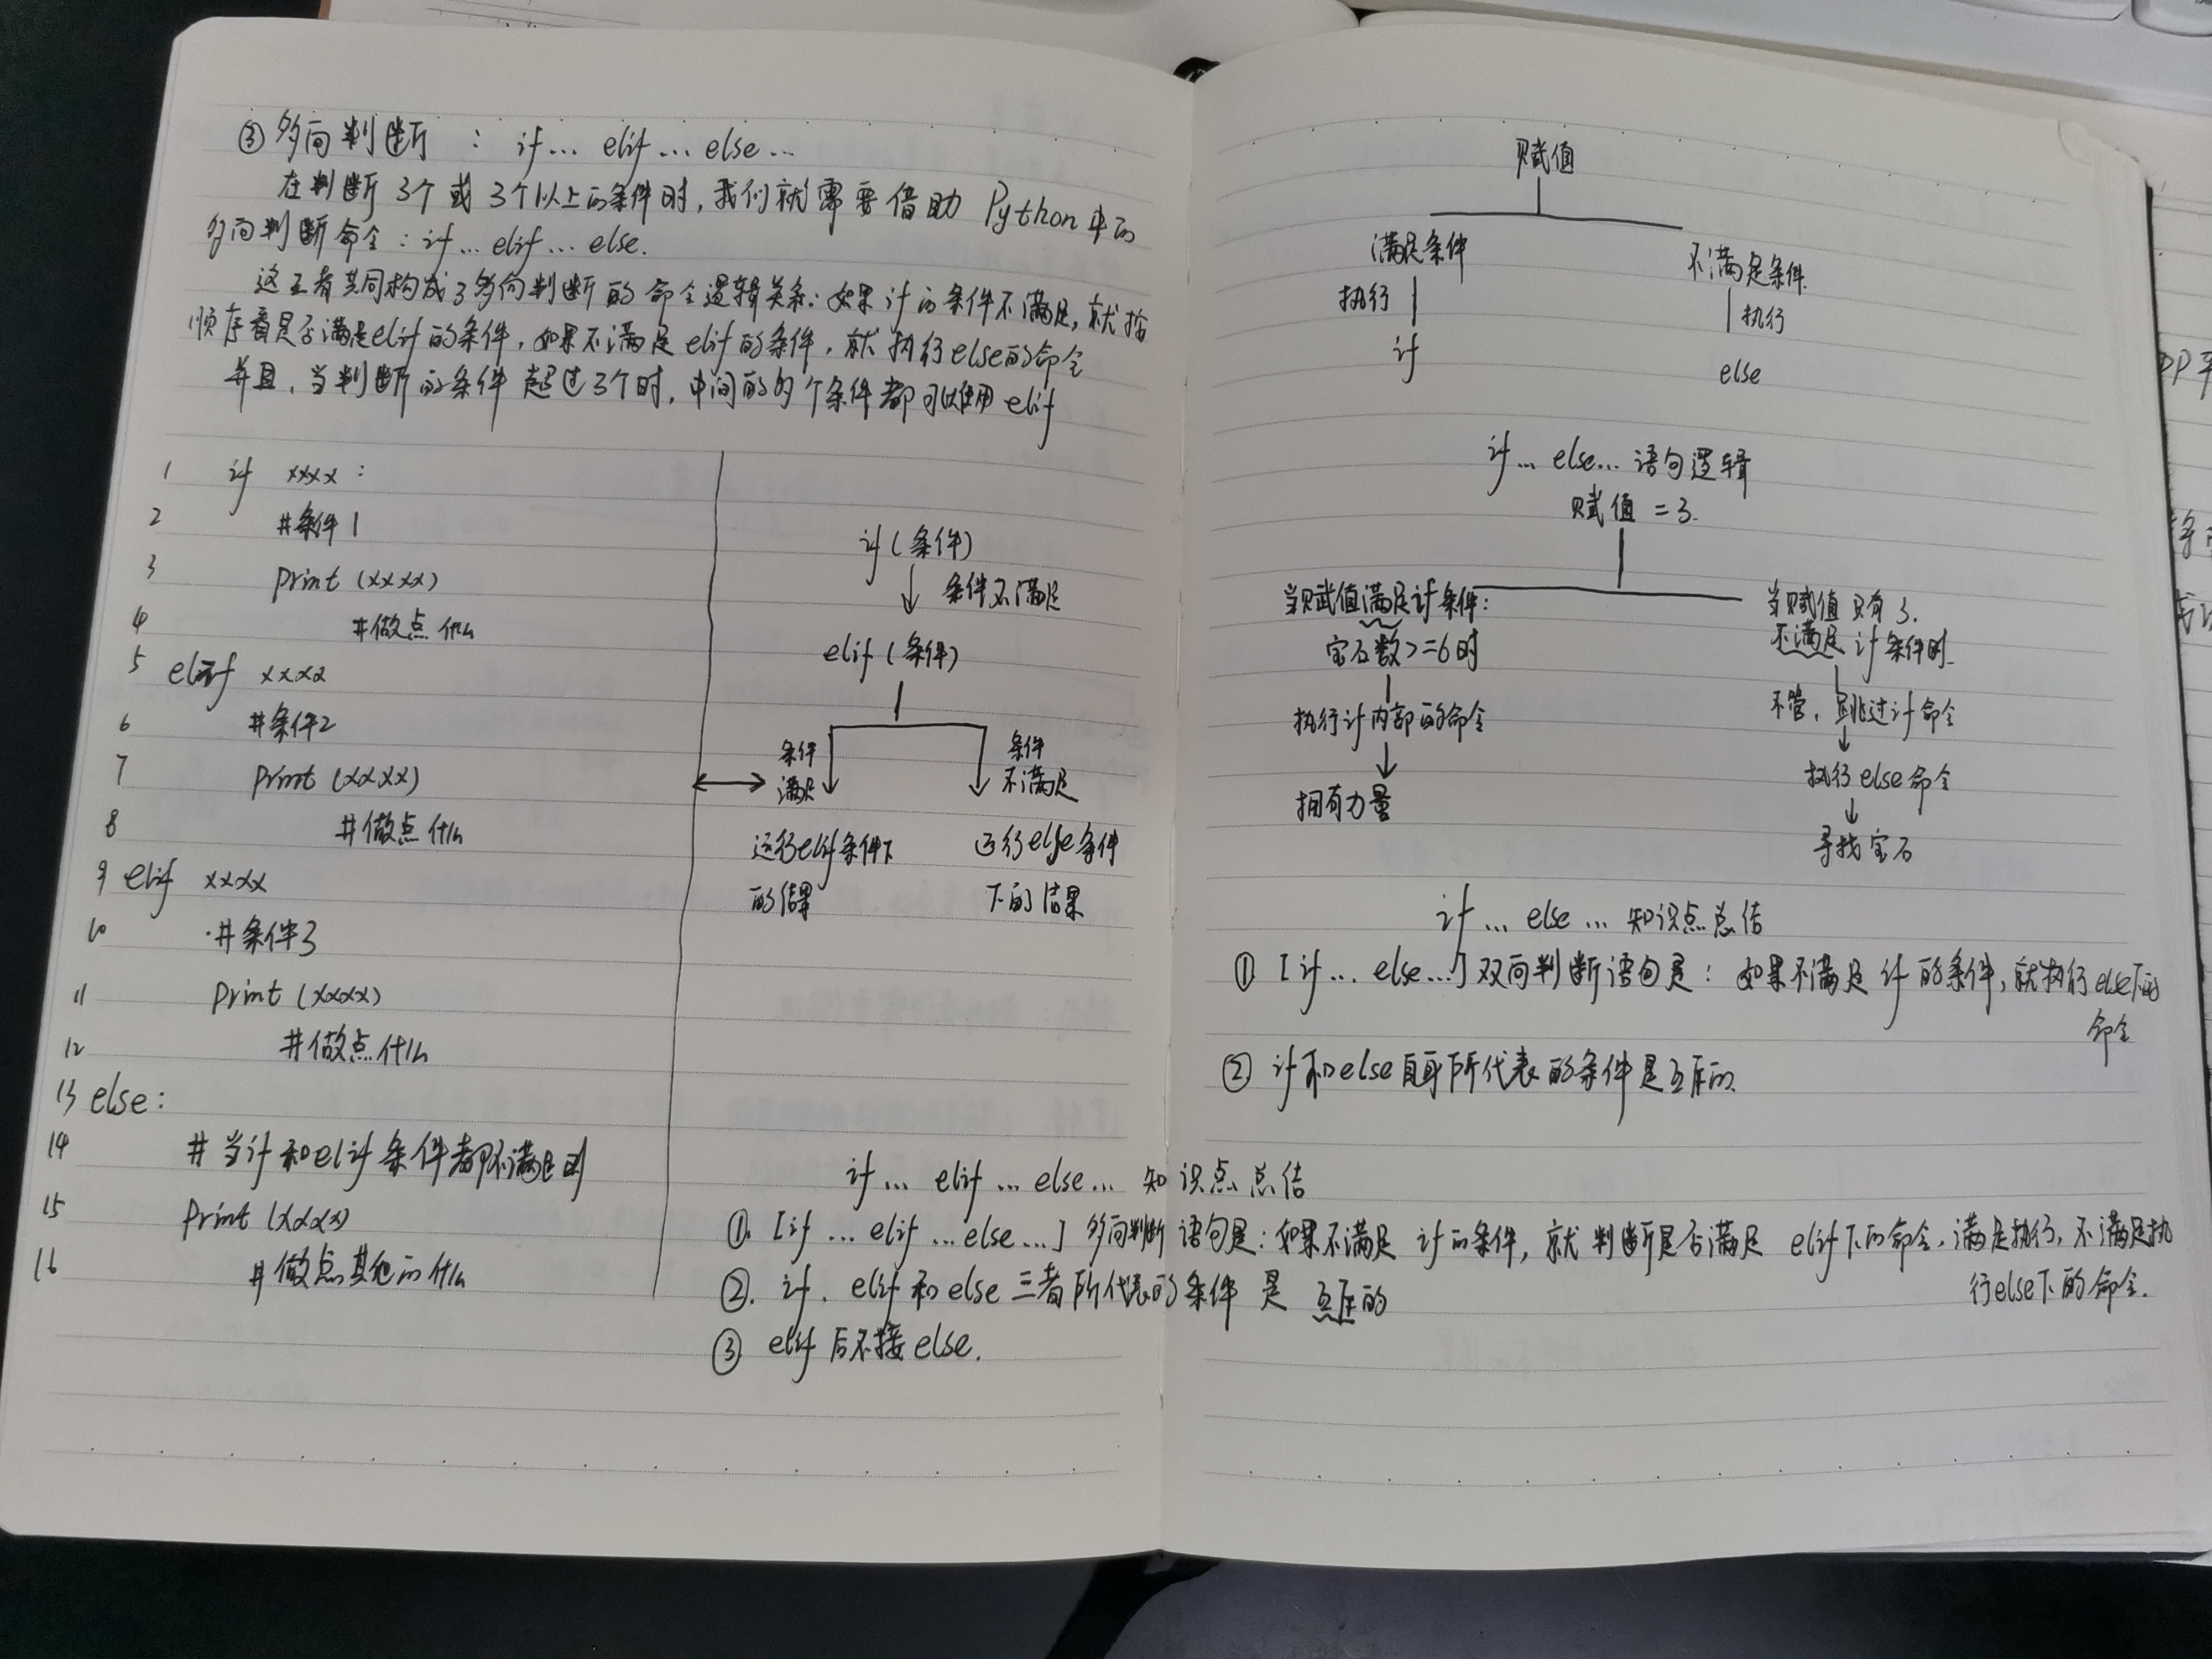 ③多向判断 : if... elif... else...
在判断3个或3个以上的条件时,我们就需要借助Python中的
多向判断命令:if...elif...else.
这三者共同构成了多向判断的命令逻辑关系:如果if的条件不满足,就按
顺序看是否满足elif的条件,如果不满足elif的条件,就执行else的命令
并且,当判断的条件超过3个时,中间的多个条件都可以使用elif
1 if xxxx :
2 #条件1
3 print (xxxx)
4 #做点什么
5 elif xxxx
6 #条件2
7 print (xxxx)
8 #做点什么
9 elif xxxx
10 #条件3
11 print (xxxx)
12 #做点什么
13 else:
14 #当if和elif条件都不满足时
15 print (xxxx)
16 #做点其他的什么
if(条件)
条件不满足
elif(条件)
条件 条件
满足 不满足
运行elif条件下 运行else条件
的结果 下的结果
赋值
满足条件 不满足条件
执行 执行
if else
if... else... 语句逻辑
赋值=3.
当赋值满足if条件: 当赋值只有3.
宝石数>=6时 不满足if条件时
执行if内部的命令 不管,跳过if命令
拥有力量 执行else命令
寻找宝石
if... else... 知识点总结
①[if... else...]双向判断语句是:如果不满足if的条件,就执行else下的
命令
②if和else自身所代表的条件是互斥的
if... elif... else... 知识点总结
①.[if...elif...else...]多向判断语句是:如果不满足if的条件,就判断是否满足elif下的命令,满足执行,不满足执
行else下的命令.
②.if.elif和else三者所代表的条件是互斥的
③elif后不接else.